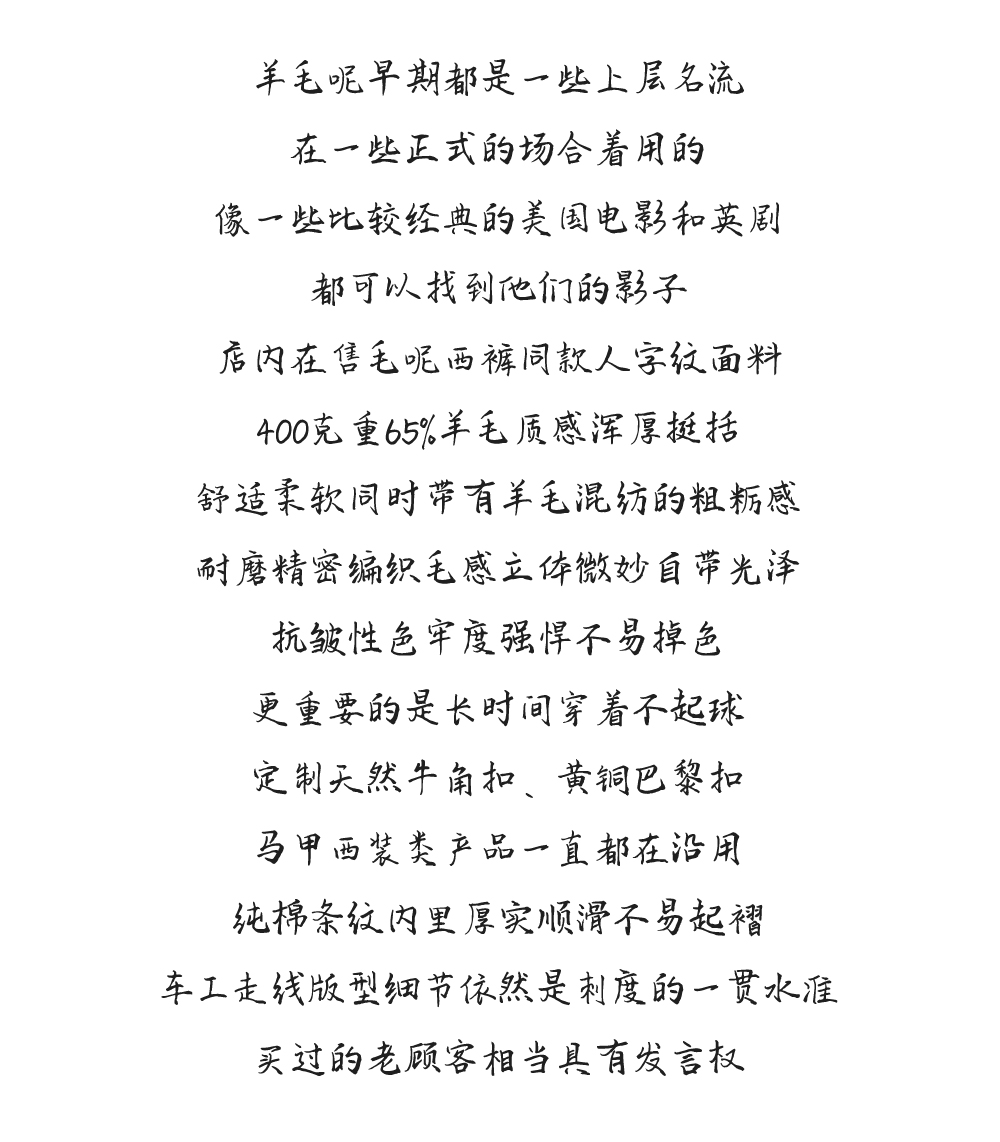 羊毛呢早期都是一些上层名流
在一些正式的场合着用的
像一些比较经典的美国电影和英剧
都可以找到他们的影子
店内在售毛呢西裤同款人字纹面料
400克重65%羊毛质感浑厚挺括
舒适柔软同时带有羊毛混纺的粗粝感
耐磨精密编织毛感立体微妙自带光泽
抗皱性色牢度强悍不易掉色
更重要的是长时间穿着不起球
定制天然牛角扣、黄铜巴黎扣
马甲西装类产品一直都在沿用
纯棉条纹内里厚实顺滑不易起褶
车工走线版型细节依然是刺度的一贯水准
买过的老顾客相当具有发言权